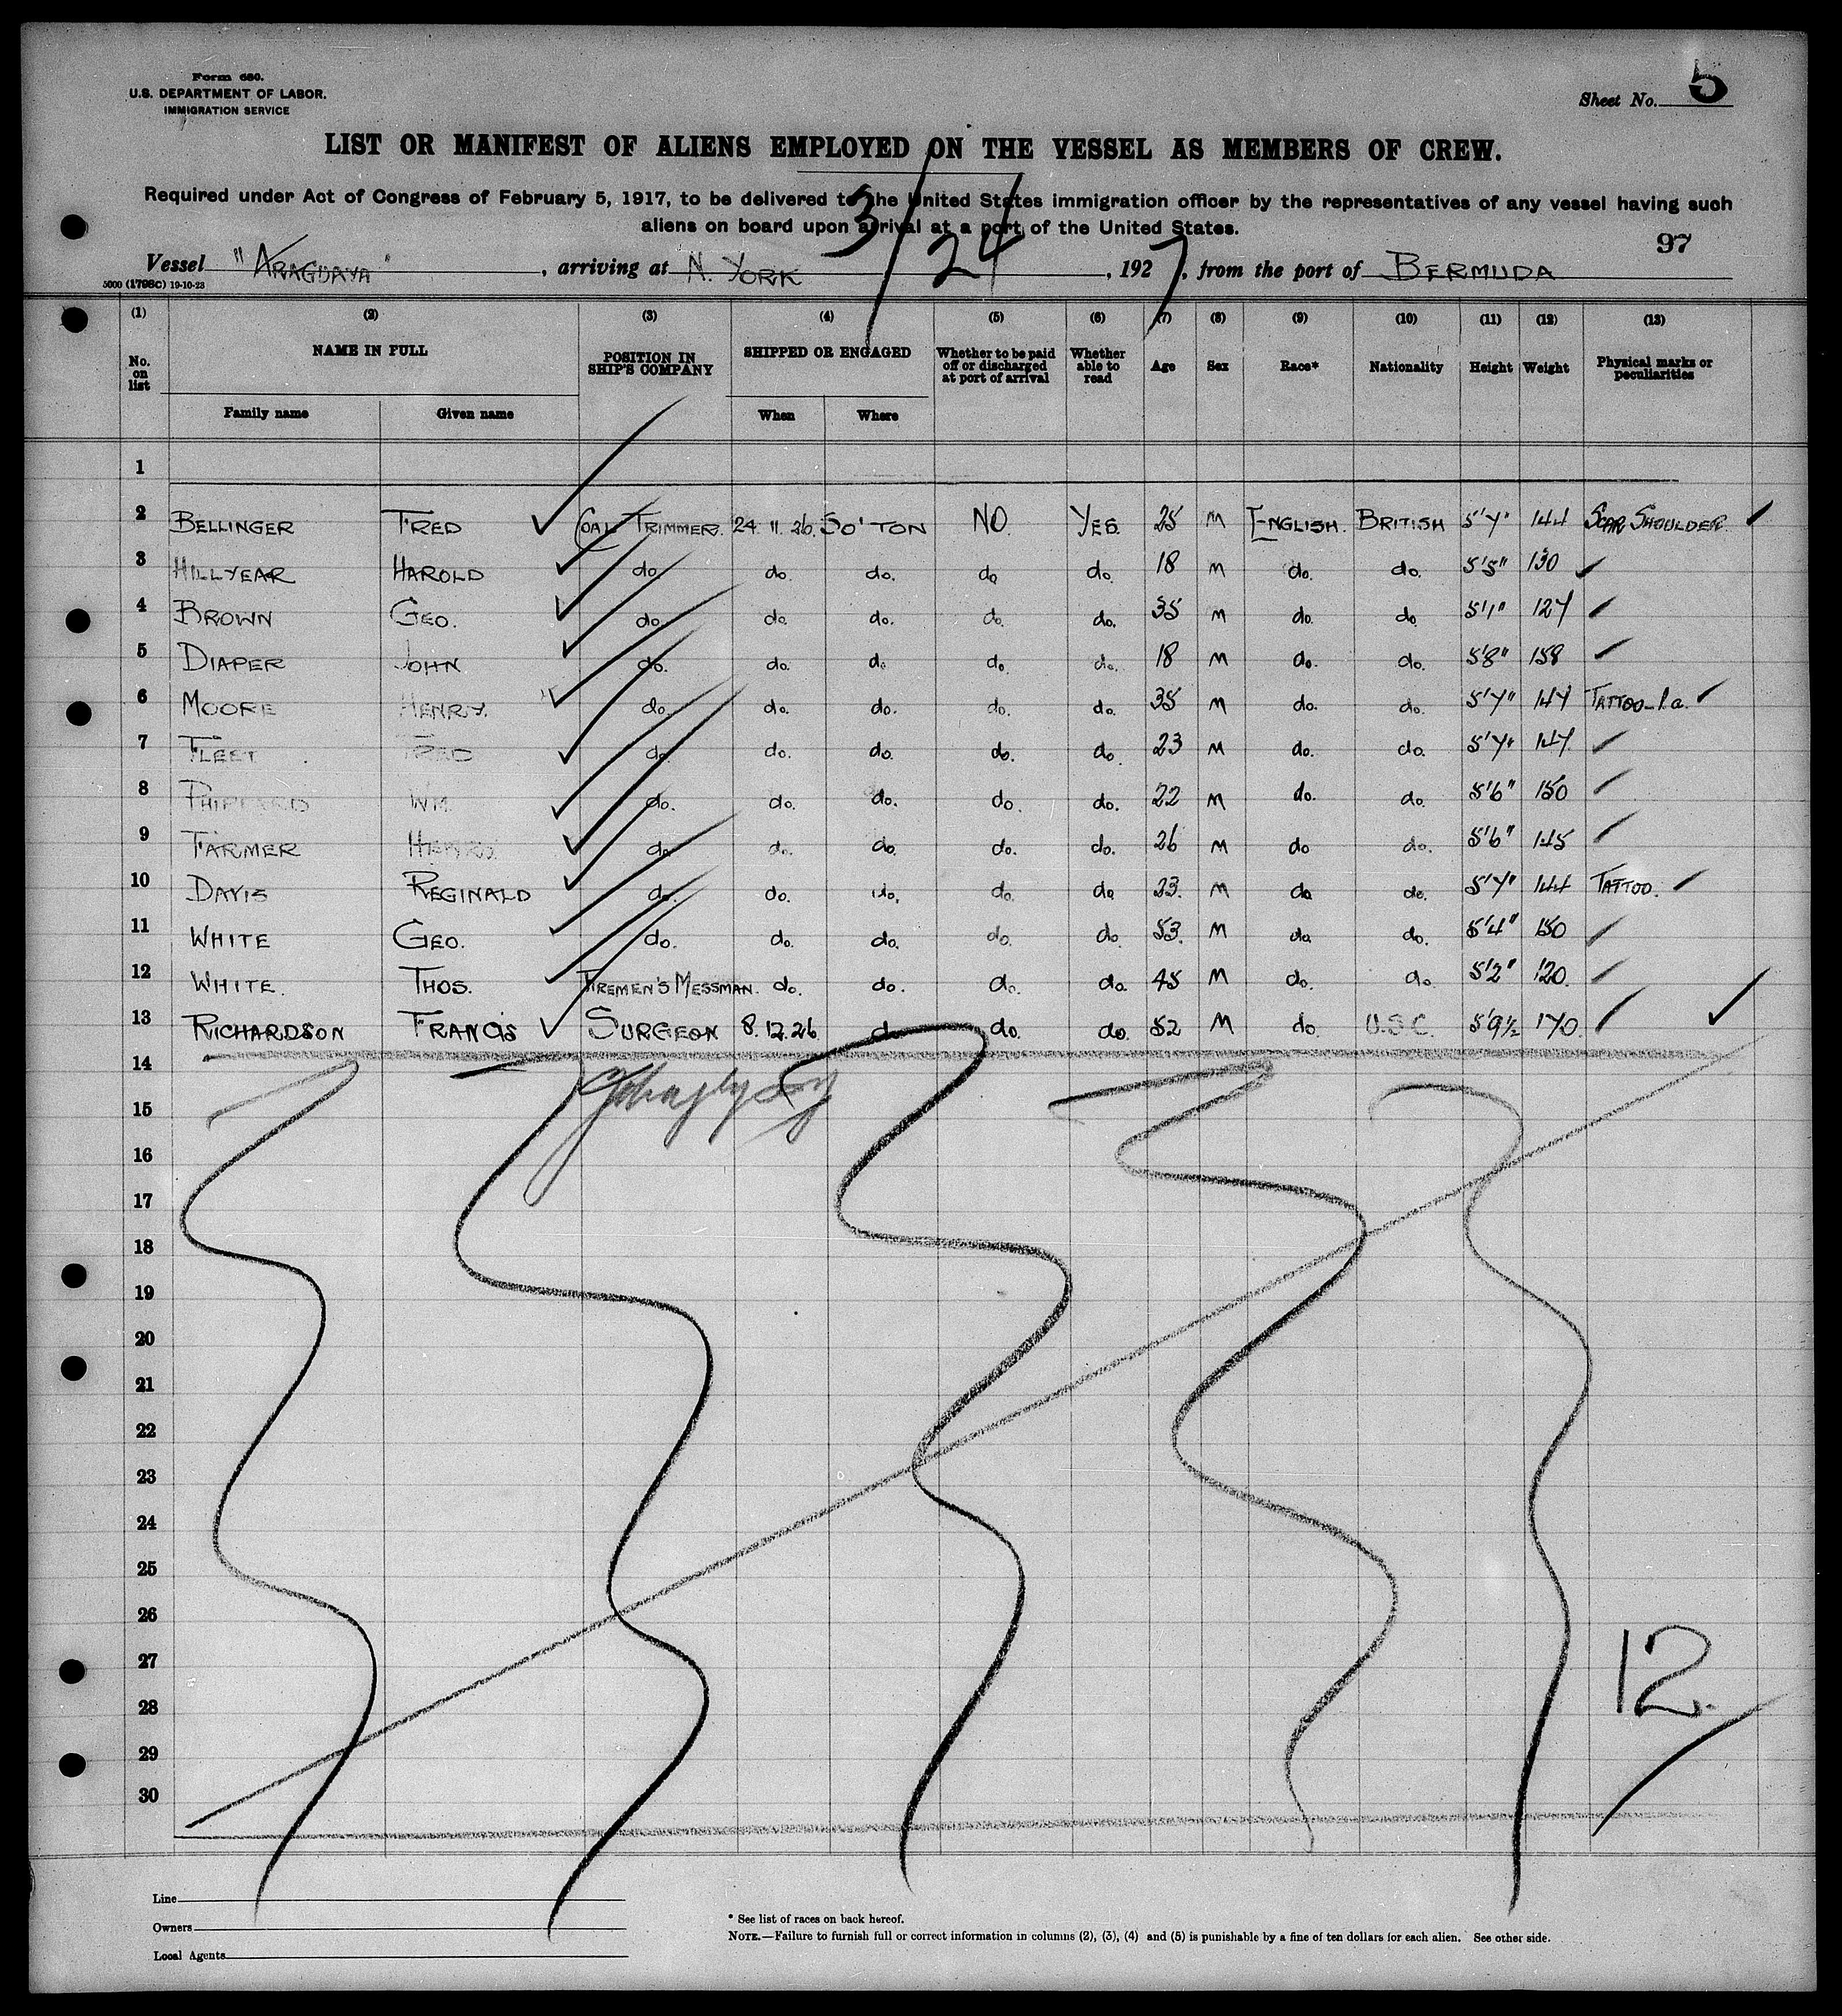 Form 680.
U.S. DEPARTMENT OF LABOR.
IMMIGRATION SERVICE
Sheet No. 5
LIST OR MANIFEST OF ALIENS EMPLOYED ON THE VESSEL AS MEMBERS OF CREW.
Required under Act of Congress of February 5, 1917, to be delivered to the United States immigration officer by the representatives of any vessel having such
aliens on board upon arrival at a port of the United States.
97
Vessel "ARAGUAYA", arriving at N. YORK 3/24, 1927, from the port of BERMUDA
5000 (1798C) 19-10-23
(1) (2) (3) (4) (5) (6) (7) (8) (9) (10) (11) (12) (13)
No. on list NAME IN FULL POSITION IN SHIP'S COMPANY SHIPPED OR ENGAGED Whether to be paid off or discharged at port of arrival Whether able to read Age Sex Race* Nationality Height Weight Physical marks or peculiarities
Family name Given name When Where
1
2 BELLINGER FRED COAL TRIMMER. 24.11.26. SO'TON NO. YES. 25 M ENGLISH. BRITISH 5'7" 144 SCAR SHOULDER
3 HILLYEAR HAROLD do. do. do. do do. 18 M do. do. 5'5" 130
4 BROWN GEO. do. do. do. do. do. 35 M do. do 5'1" 127
5 DIAPER JOHN do. do. do do. do. 18 M do. do. 5'8" 158
6 MOORE HENRY. do. do. do. do. do. 35 M do. do. 5'7" 147 TATTOO - l.a.
7 FLEET FRED do. do. do. do. do. 23 M do. do. 5'7" 147.
8 WM. do. do. do. do. do. 22 M do. do. 5'6" 150
9 FARMER do. do. do. do. do. 26 M do do. 5'6" 145
10 DAVIS REGINALD do. do. do. do. do 23. M do do. 5'7" 144 TATTOO.
11 WHITE GEO. do. do. do. do. do. 53. M do do. 5'4" 150
12 WHITE. THOS. FIREMEN'S MESSMAN. do. do. do. do. 45 M do. do. 5'2" 120.
13 RICHARDSON FRANCIS SURGEON 8.12.26 do do. do. 52 M do. U.S.C. 5'9½ 170.
14
15
16
17
18
19
20
21
22
23
24
25
26
27
28
29
30
12.
Line
Owners
Local Agents
* See list of races on back hereof.
NOTE.—Failure to furnish full or correct information in columns (2), (3), (4) and (5) is punishable by a fine of ten dollars for each alien. See other side.